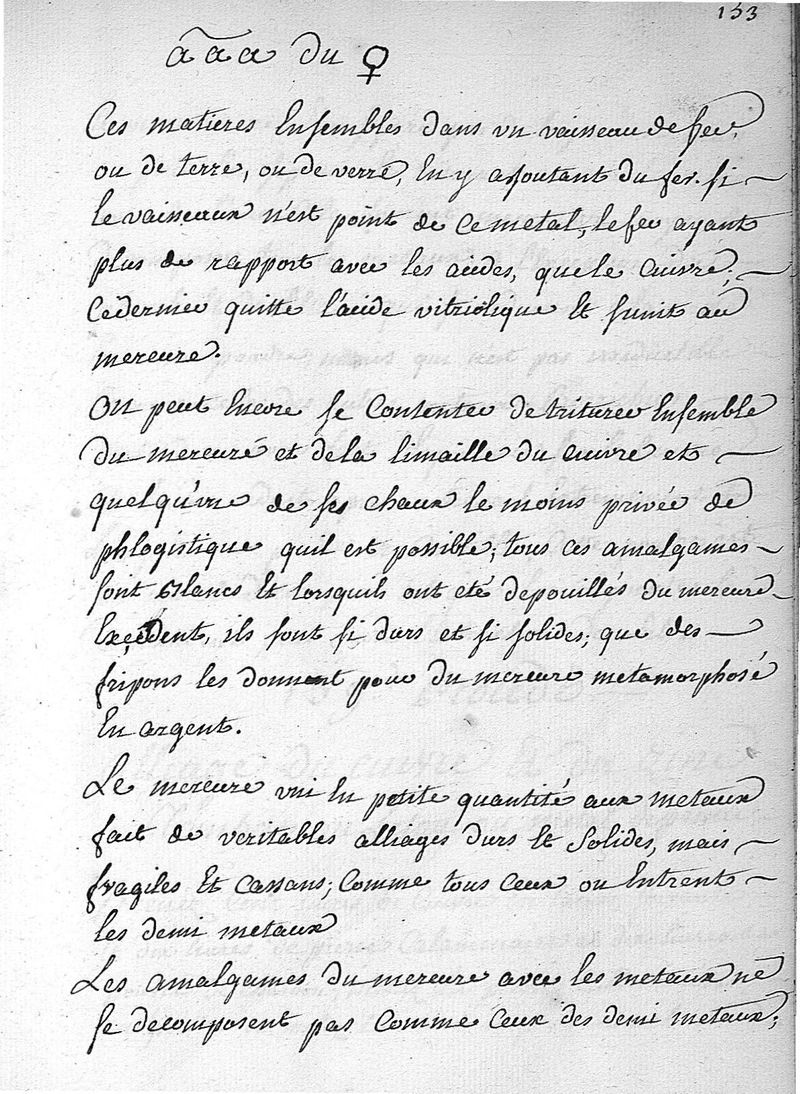 153
āāa du ♀
Ces matieres Ensembles dans un vaisseau de fer,
ou de terre, ou de verre, En y ajoutant du fer. si
le vaisseaux n'est point de ce metal, le fer ayant
plus de rapport avec les acides, que le cuivre,
Ce dernier quitte l'acide vitriolique Et s'unit au
mercure.
On peut Encore se Contenter de triturer Ensemble
du mercure et de la limaille du cuivre et
quelqu'une de ses chaux le moins privée de
phlogistique quil est possible; tous ces amalgames
sont blancs Et lorsquils ont eté depouillés du mercure
Excedent, ils sont si durs et si solides; que des
fripons les donnent pour du mercure metamorphosé
En argent.
Le mercure uni En petite quantité aux metaux
fait de veritables alliages durs Et Solides, mais
fragiles Et cassans; Comme tous Ceux ou Entrent
les demi metaux
Les amalgames du mercure avec les metaux ne
se decomposent pas Comme Ceux des demi metaux;